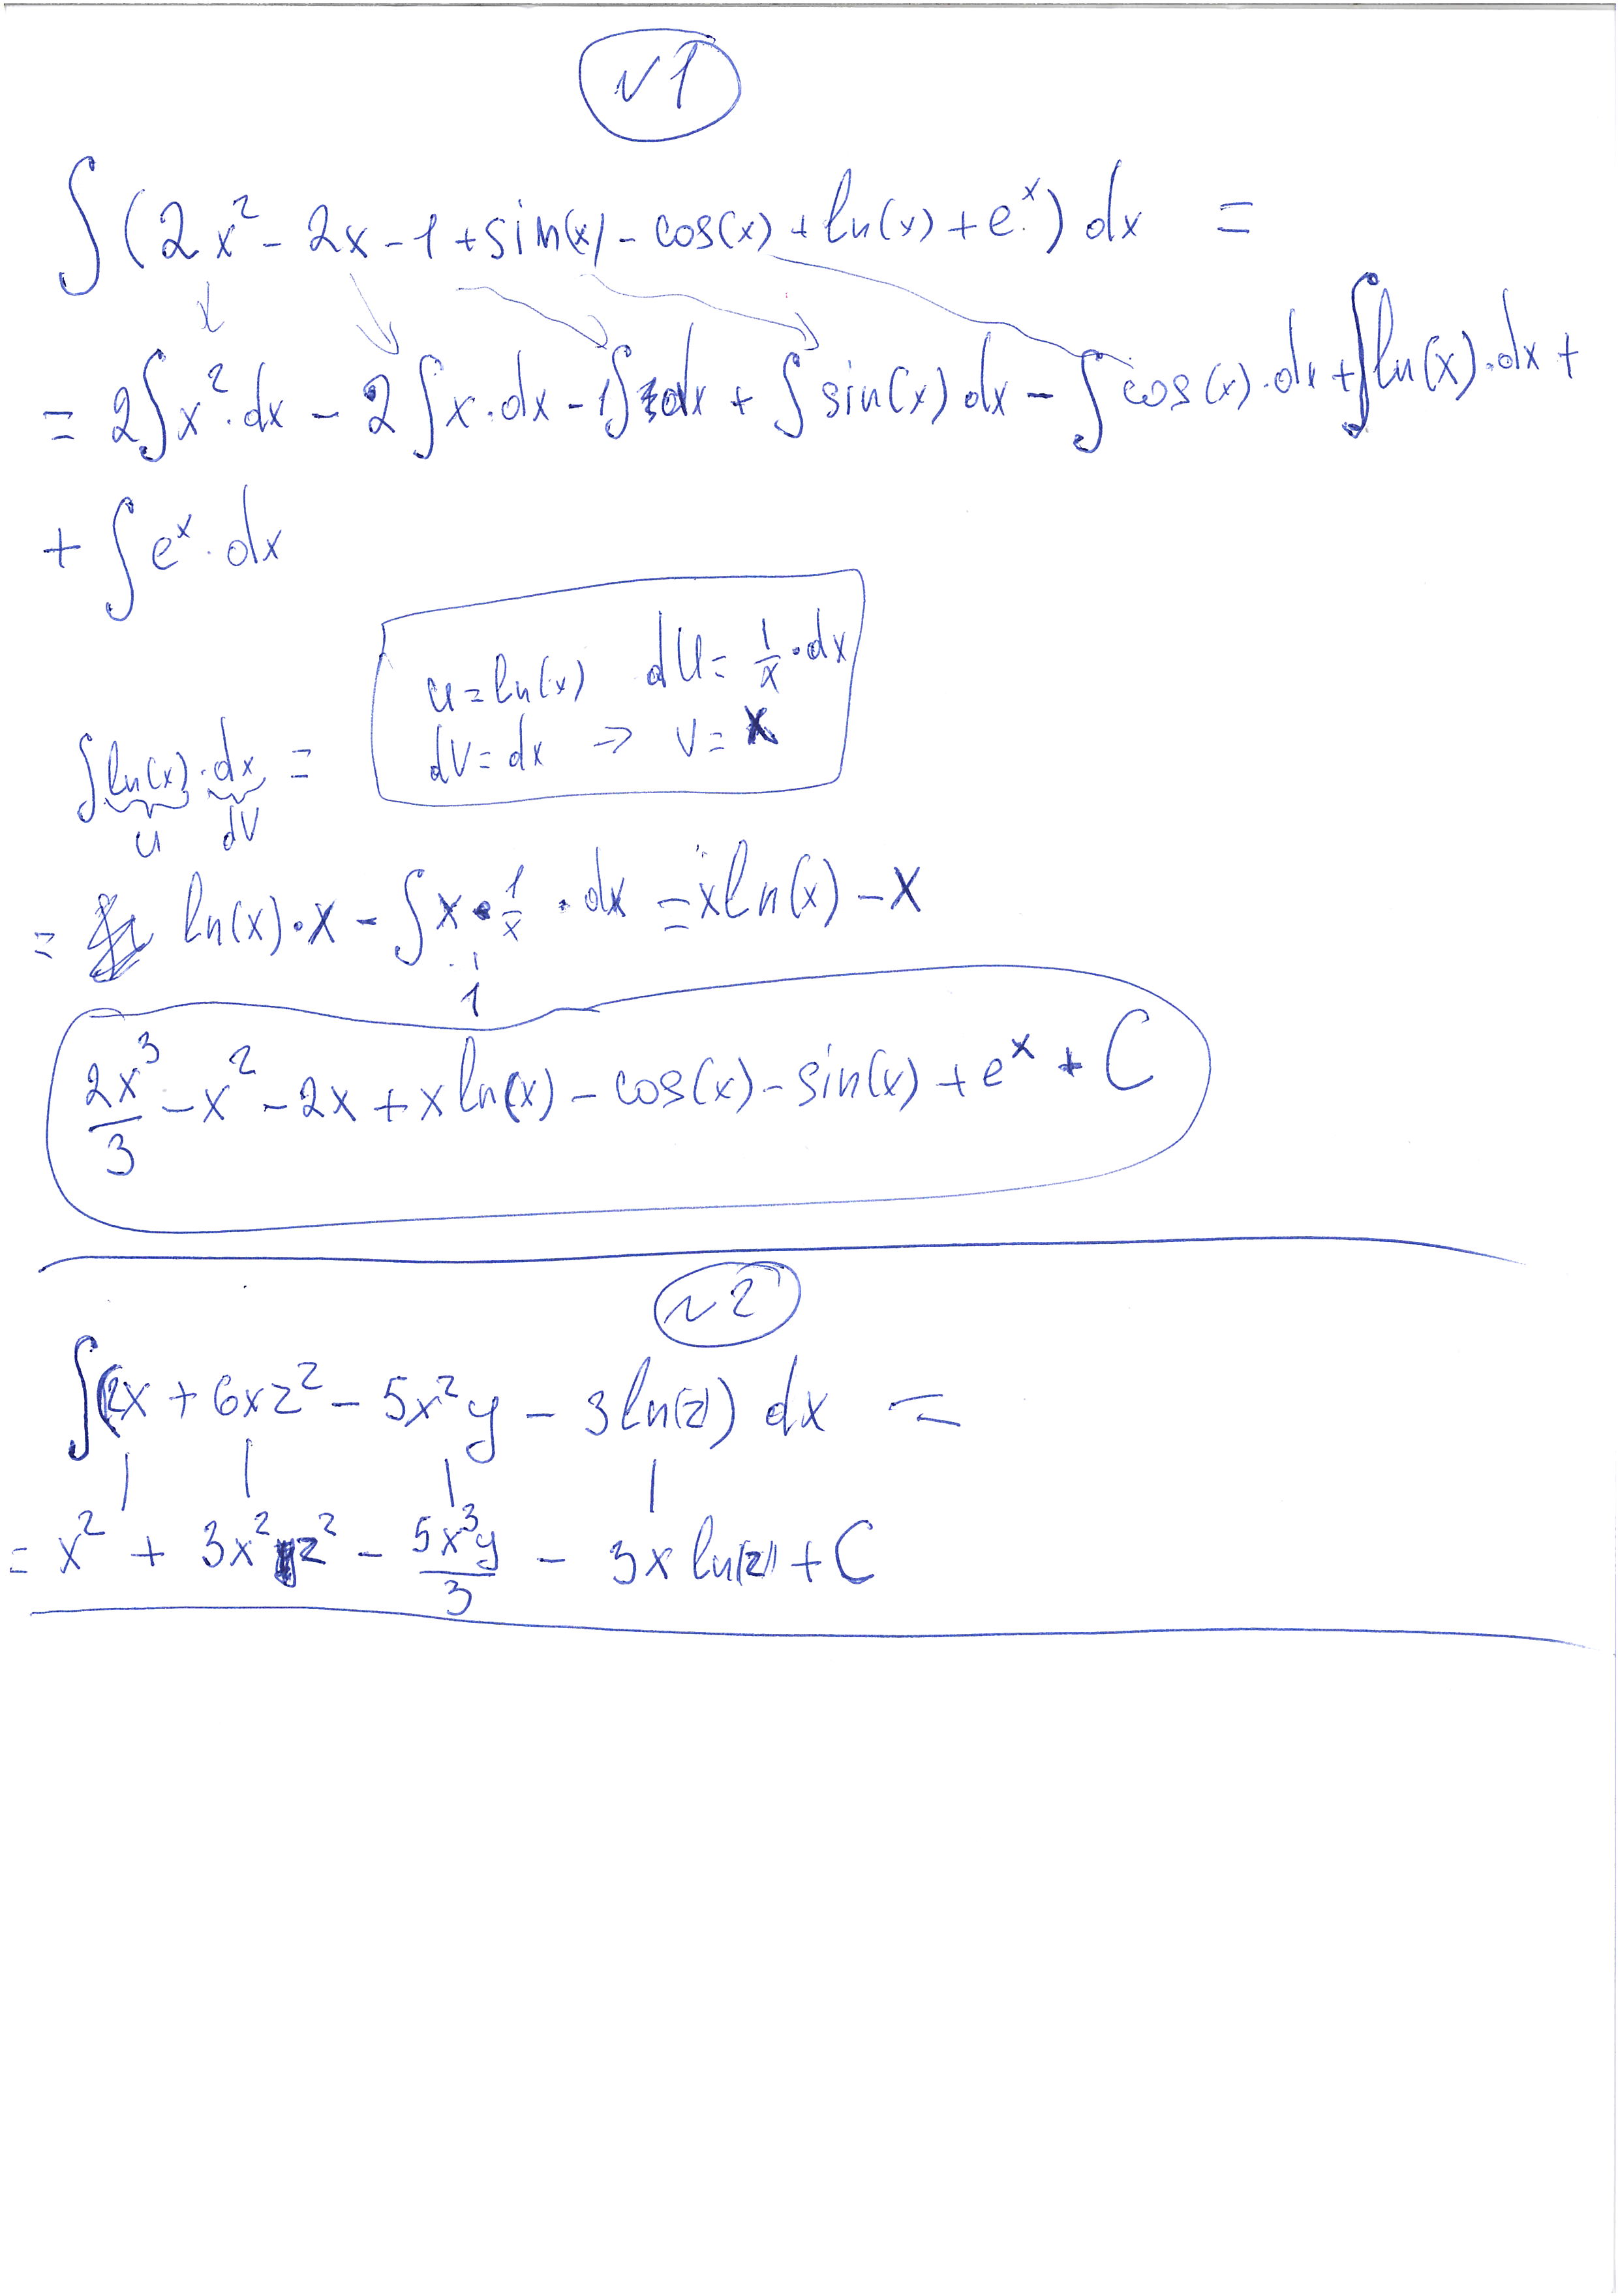 №1
∫(2x² - 2x - 1 + sin(x) - cos(x) + ln(x) + eˣ) dx =
= 2∫x²·dx - 2∫x·dx - 1∫dx + ∫sin(x) dx - ∫cos(x)·dx + ∫ln(x)·dx +
+ ∫eˣ·dx
u = ln(x) du = 1/x·dx
dv = dx ⇒ v = x
∫ln(x)·dx =
u dv
= ln(x)·x - ∫x·1/x·dx = xln(x) - x
1
2x³/3 - x² - 2x + xln(x) - cos(x) - sin(x) + eˣ + C
№2
∫(2x + 6xz² - 5x²y - 3ln(z)) dx =
= x² + 3x²z² - 5x³y/3 - 3x ln(z) + C